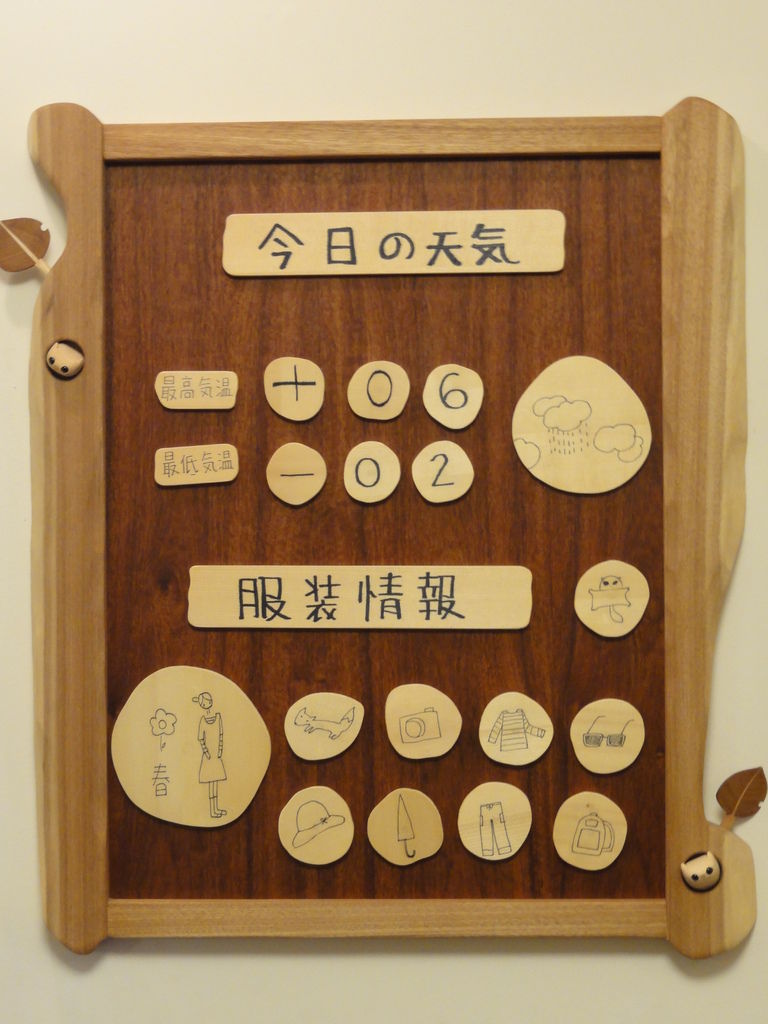 今日の天気
最高気温 + 0 6
最低気温 - 0 2
服装情報
春